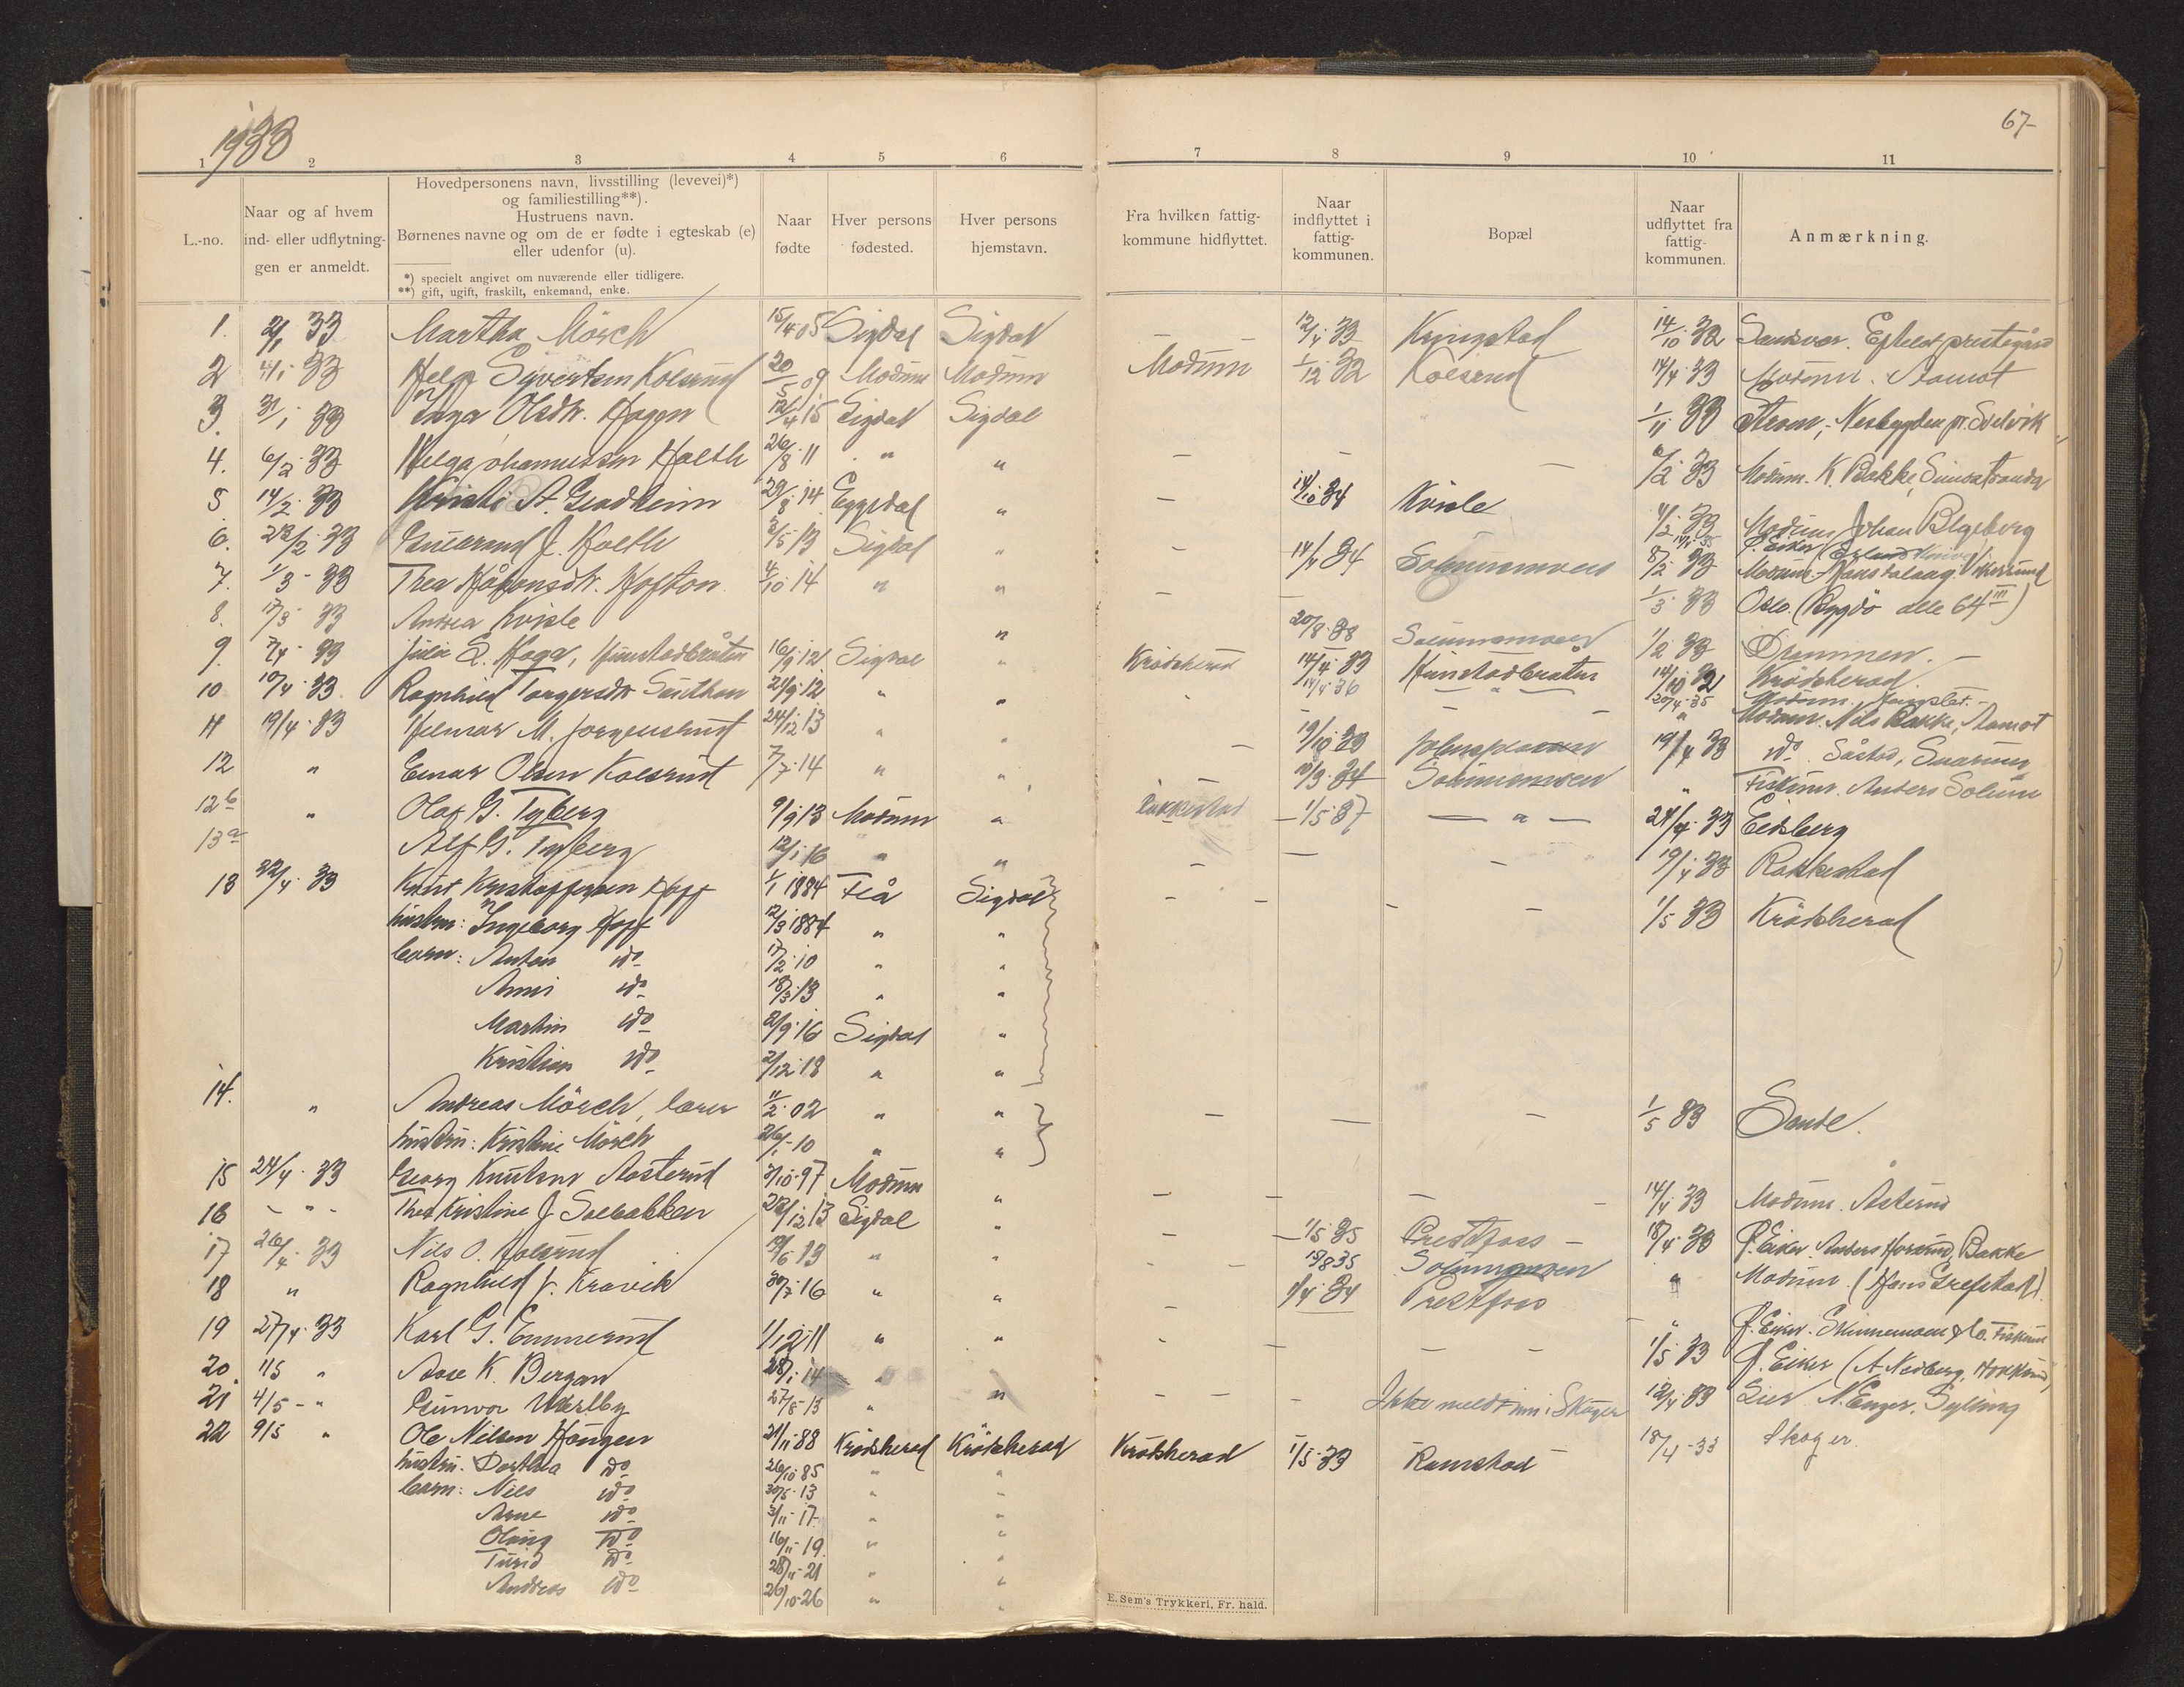 1933
67-
1 2 3 4 5 6 7 8 9 10 11
L.-no.
Naar og af hvem
ind- eller udflytnin-
gen er anmeldt.
Hovedpersonens navn, livsstilling (levevei)*)
og familiestilling**).
Hustruens navn.
Børnenes navne og om de er fødte i egteskab (e)
eller udenfor (u).
*) specielt angivet om nuværende eller tidligere.
**) gift, ugift, fraskilt, enkemand, enke.
Naar
fødte
Hver persons
fødested.
Hver persons
hjemstavn.
Fra hvilken fattig-
kommune hidflyttet.
Naar
indflyttet i
fattig-
kommunen.
Bopæl
Naar
udflyttet fra
fattig-
kommunen.
Anmærkning.
1. 2/1 33 Martha Mörch 15/4 05 Sigdal Sigdal — 12/4 33 Kringstad 14/10 32 Sandsvær. Efteløt prestegård
2 4/1 33 Helge Syvertsen Kolsrud 20/5 09 Modum Modum Modum 1/12 32 Kolsrud 14/4 33 Modum. Aamot
3. 31/1 33 Inga Olsdtr. Hagen 12/4 15 Sigdal Sigdal 1/11 33 Nesbygden pr. Svelvik
4. 6/2 33 Helga Johannessen Holth 26/8 11 " " — — — 6/2 33 Modum. K. Bakke
5 14/2 33 Kristi A. Grodheim 29/8 14 Eggedal " — 14/10 34 Kvisle 4/2 33 Modum Johan
6. 23/2 33 Gudbrand J. Holth 3/5 13 Sigdal " — 14/4 34 Solumsmoen 8/2 33 Modum
7. 1/3 33 Thea Håkonsdtr. Hofton 4/10 14 " " — — 1/3 33 Oslo. (Bygdö alle 64 III)
8. 17/3 33 Andrea Kvisle " 20/8 38 Solumsmoen 1/2 33 Drammen. —
9. 7/4 33 Julie E. Haga, Hunstadbråten 16/9 12 Sigdal " Krödsherad 14/4 33 Hunstadbråten 14/10 32 Krödsherad
10 10/4 33 Ragnhild Torgersdtr 21/9 12 " " 14/4 36 20/4 35 Modum
11 19/4 33 Helmar M. Jorgensrud 24/12 13 " " — 19/10 33 " Modum. Nils Bakke, Aamot
12 " Einar Olsen Kolsrud 7/7 14 " " 10/3 34 Solumsmoen 19/4 33 do Såstad, Snarum
12 b " Olaf G. Tyberg 9/9 13 Modum " Rakkestad 1/5 37 — " — " Fiskum. Anders Solum
24/4 33 Eidsberg
13 a Alf G. Tyberg 12/1 16 " " — — — 19/4 33 Rakkestad
13 22/4 33 Knut Kristoffersen Hoff 1/1 1884 Flå Sigdal — — — — 1/5 33 Krödsherad
hustru: Ingeborg Hoff 12/3 1884 " "
barn: Anton do 17/2 10 " "
Anni do 18/3 13 " "
Martin do 2/9 16 Sigdal "
Kristian do 2/12 18 " "
14. " Andreas Mörch, lærer 11/2 02 " " — — — 1/5 33 Sande.
hustru: Kristine Mörch 26/1 10 " "
15 24/4 33 Georg Knutsen Aasterud 3/10 97 Modum " — — — — 14/4 33 Modum. Åsterud
16 - " - Thea Kristine J. Solbakken 28/12 13 Sigdal " — 1/5 35 Prestfoss — 18/4 33 Ø. Eiker. Anders Horsrud, Bakke
17 26/4 33 Nils O. Jolsrud 19/6 13 " " - - 15/8 35 Solumsmoen " Modum (Hans Grefstad)
18 " Ragnhild J. Kravik 30/7 16 " " — 1/4 34 Prestfoss " Ø. Eiker. & Co. Fiskum
19 27/4 33 Karl G. Emmerud 1/12 11 " " - — — — 1/5 33 Ø. Eiker (A. Nedberg, Hokksund)
20 1/5 " Aase K. Bergan 28/1 14 " — — 12/4 33 Lier N. Enger, Sylling
21 4/5 - " Gunvor Warlby 27/8 13 " " — Ikke meldt inn i Skoger 18/4 -33 Skoger.
22 9/5 " Ole Nilsen Haugen 21/11 88 Krödsherad Krödsherad Krödsherad 1/5 33 Ramstad
hustru. Dorthea do 26/10 85 " "
barn: Nils do 30/5 13 " "
Arne do 3/11 17 " "
Olaug do 16/11 19 " "
Turid do 28/11 21 " "
Andreas do 26/10 26 " "
E. Sem's Trykkeri, Fr. hald.